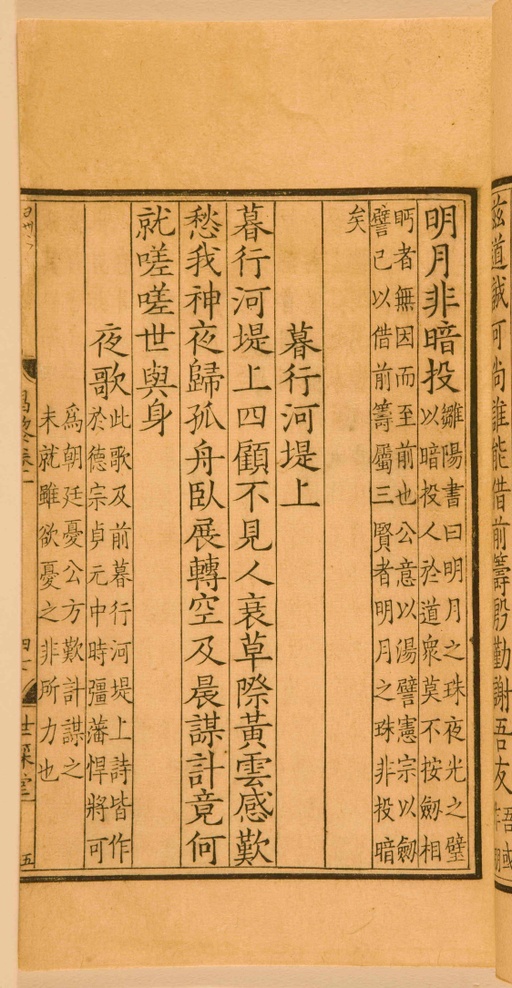 茲道誠可尚誰能借前籌殷勤謝吾友
明月非暗投
雛陽書曰明月之珠夜光之璧
以暗投人於道衆莫不按劔相
眄者無因而至前也公意以湯譬憲宗以劔
譬已以借前籌屬三賢者明月之珠非投暗
矣
暮行河堤上
暮行河堤上四顧不見人衰草際黃雲感歎
愁我神夜歸孤舟臥展轉空及晨謀計竟何
就嗟嗟世與身
夜歌
此歌及前暮行河堤上詩皆作
於德宗貞元中時彊藩悍將可
爲朝廷憂公方歎計謀之
未就雖欲憂之非所力也
五